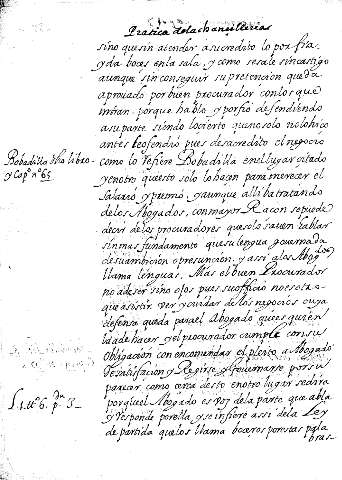 Pratica de la chancilleria
sino que sin atender a su credito lo porfia,
y da boces en la sala, y como se sale sin castigo
aunque sin conseguir su pretencion queda
aprovado por buen procurador con los que
miran. porque hablo y porfio defendiendo
a su parte siendo lo cierto que no solo no lo hico
antes le ofendio pues desacredito el negocio
como lo refiere Bobadilla en el lugar citado
Bobadilla
y en otro que esto solo lo hacen para merecer el
salario y premio, y aunque alli ba tratando
de los Abogados, con mayor Racon se puede
decir de los procuradores que solo saven hablar
sin mas fundamento que su lengua governada
de su ambicion o presuncion. y assi a los Abogdos
llama lenguas, Mas el buen Procurador
no a de ser sino ojos pues su officio no es otra
que asistir ver y cuidar de los negocios cuya
defensa queda para el Abogado que es quien
la de hacer, y el procurador cumple con su
obligacion con encomendar el pleito a Abogado
de satisfacion y Regirse y governarse por su
parecer como cerca desto en otro lugar se dira
porque el Abogado es voz de la parte que abla
L. 1. tt. 6. pda 3
y responde por ella y se infiere assi de la Ley
de partida que los llama boceros por estas pala
bras